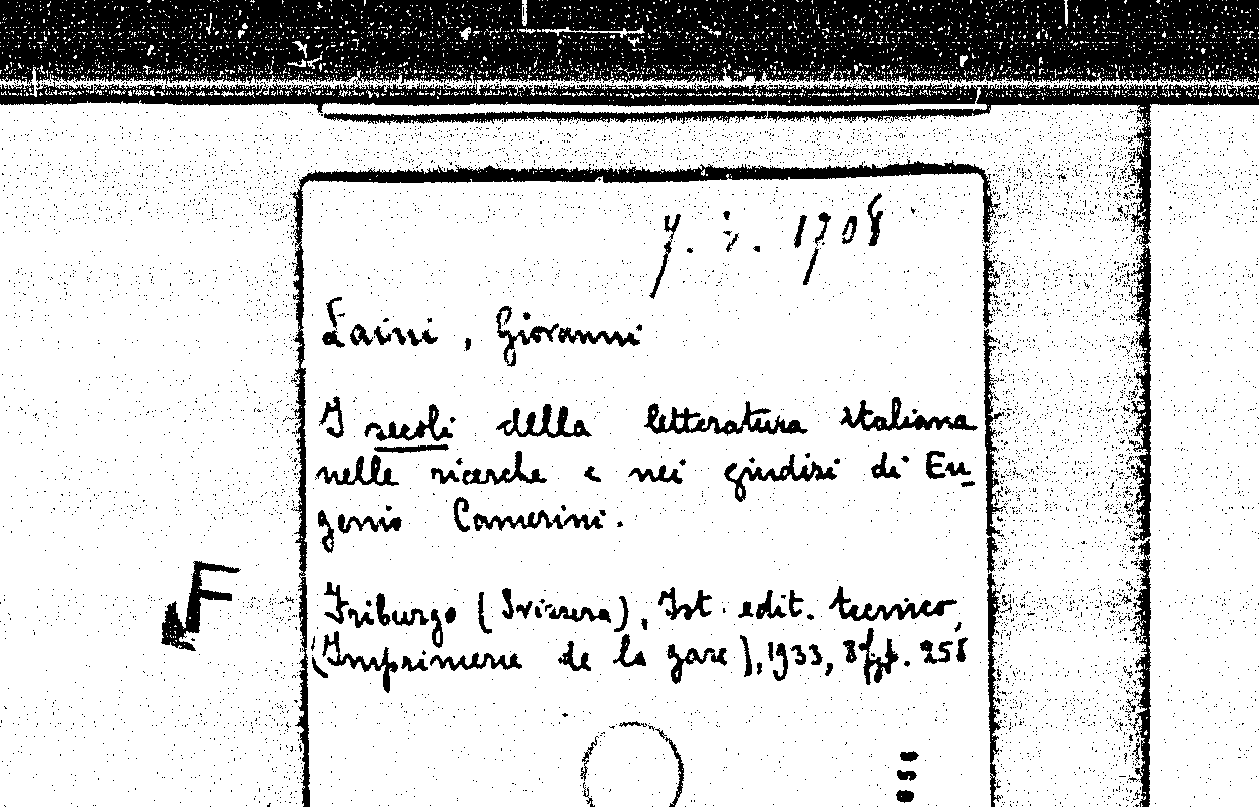 Y. i. 1708
Laini, Giovanni
I secoli della letteratura italiana
nelle ricerche e nei giudizi di Eu
genio Camerini.
Friburgo (Svizzera), Ist. edit. tecnico,
(Imprimerie de la gare), 1933, 8º, pp. 258
F